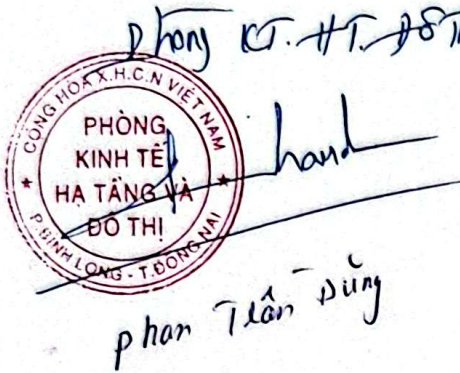 Phòng KT. HT. ĐT
CỘNG HOÀ X.H.C.N VIỆT NAM
PHÒNG
KINH TẾ
HẠ TẦNG VÀ
ĐÔ THỊ
P.BÌNH LONG - T.ĐỒNG NAI
phan Trần Dũng